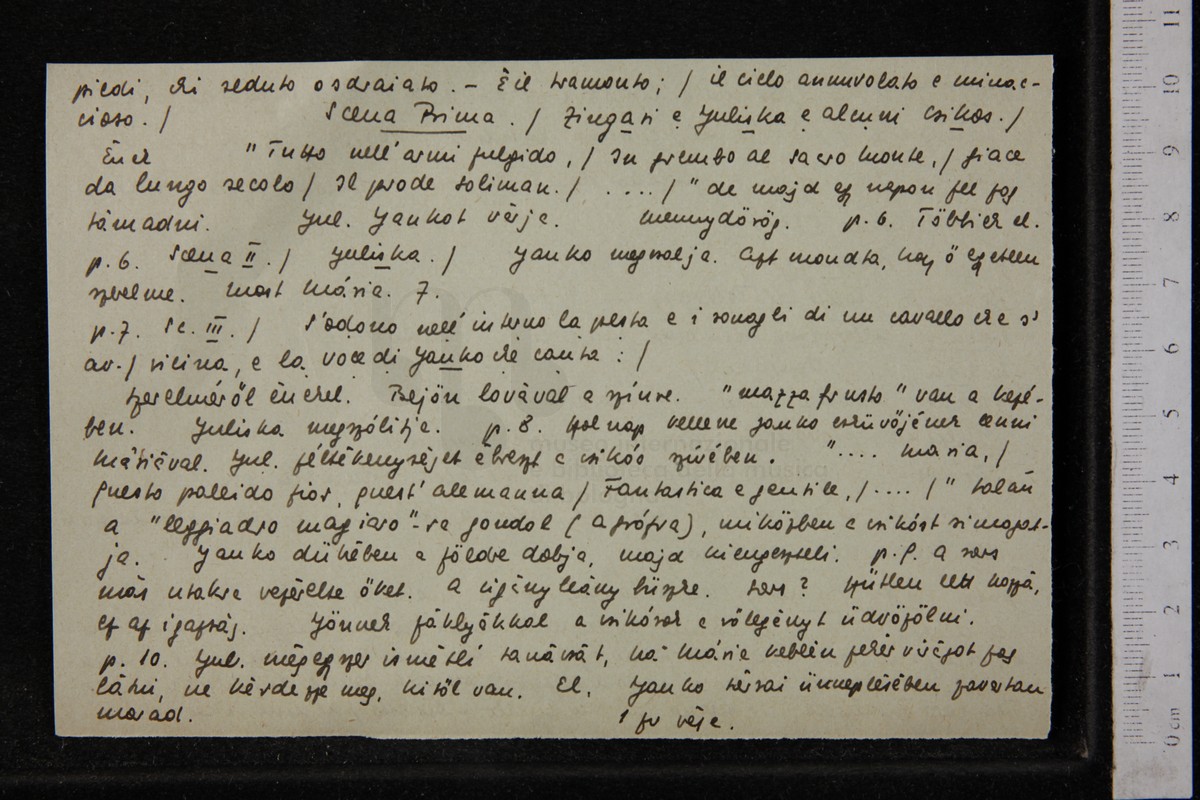 piedi, chi seduto o sdraiato. – È il tramonto; / il ciclo annuvolato e minac-
cioso. / Scena Prima. / Zingari e Yuliska e alcuni Csikos. /
Ének "Tutto nell'armi fulgido, / In grembo al sacro monte, / Giace
da lungo secolo / Il prode Soliman. / .... / " de majd egy napon fel fog
támadni. Yul. Yankot várja. Mennydörög. p. 6. Többiek el.
p. 6. Scena II. / Yuliska. / Yanko megcsalja. Azt mondta, hogy ő egyetlen
szerelme. Most Mária. 7.
p. 7. Sc. III. / S'odono nell'interno la pesta e i sonagli di un cavallo che s'
av. / vicina, e la voce di Yanko che canta : /
Szerelméről énekel. Bejön lovával a színre. "mazza frusto" van a kezé-
ben. Yuliska megszólítja. p. 8. Holnap kellene Yanko esküvőjének lenni
Máriával. Yul. féltékenységet ébreszt a csikós szívében. ".... Maria, /
Questo pallido fior, quest'alemanna / Fantastica e gentile, / .... / " talán
a "leggiadro magiaro"-ra gondol (a grófra), miközben a csikóst simogat-
ja. Yanko dühében a földre dobja, majd kiengeszteli. p. 9. A sors
más utakra vezérelte őket. A cigányleány büszke. Sors? Hűtlen lett hozzá,
ez az igazság. Jönnek fáklyákkal a csikósok a vőlegényt üdvözölni.
p. 10. Yul. mégegyszer ismétli tanácsát, ha Mária keblén fehér virágot fog
látni, ne kérdezze meg, kitől van. El. Yanko társai ünneplésében zavartan
marad. 1 fv vége.
museo internazionale
biblioteca della musica